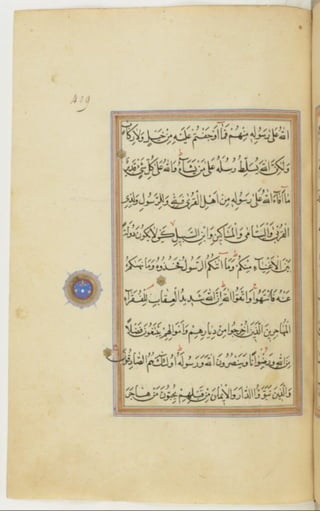 419
الله على رسوله منهم فما أوجفتم عليه من خيل ولا ركاب
ولكن الله يسلط رسله على من يشاء والله على كل شيء قدير
ما أفاء الله على رسوله من أهل القرى فلله وللرسول ولذي
القربى واليتامى والمساكين وابن السبيل كي لا يكون دولة
بين الأغنياء منكم وما آتاكم الرسول فخذوه وما نهاكم
عنه فانتهوا واتقوا الله إن الله شديد العقاب للفقراء
المهاجرين الذين أخرجوا من ديارهم وأموالهم يبتغون فضلا
من الله ورضوانا وينصرون الله ورسوله أولئك هم الصادقون
والذين تبوؤا الدار والإيمان من قبلهم يحبون من هاجر